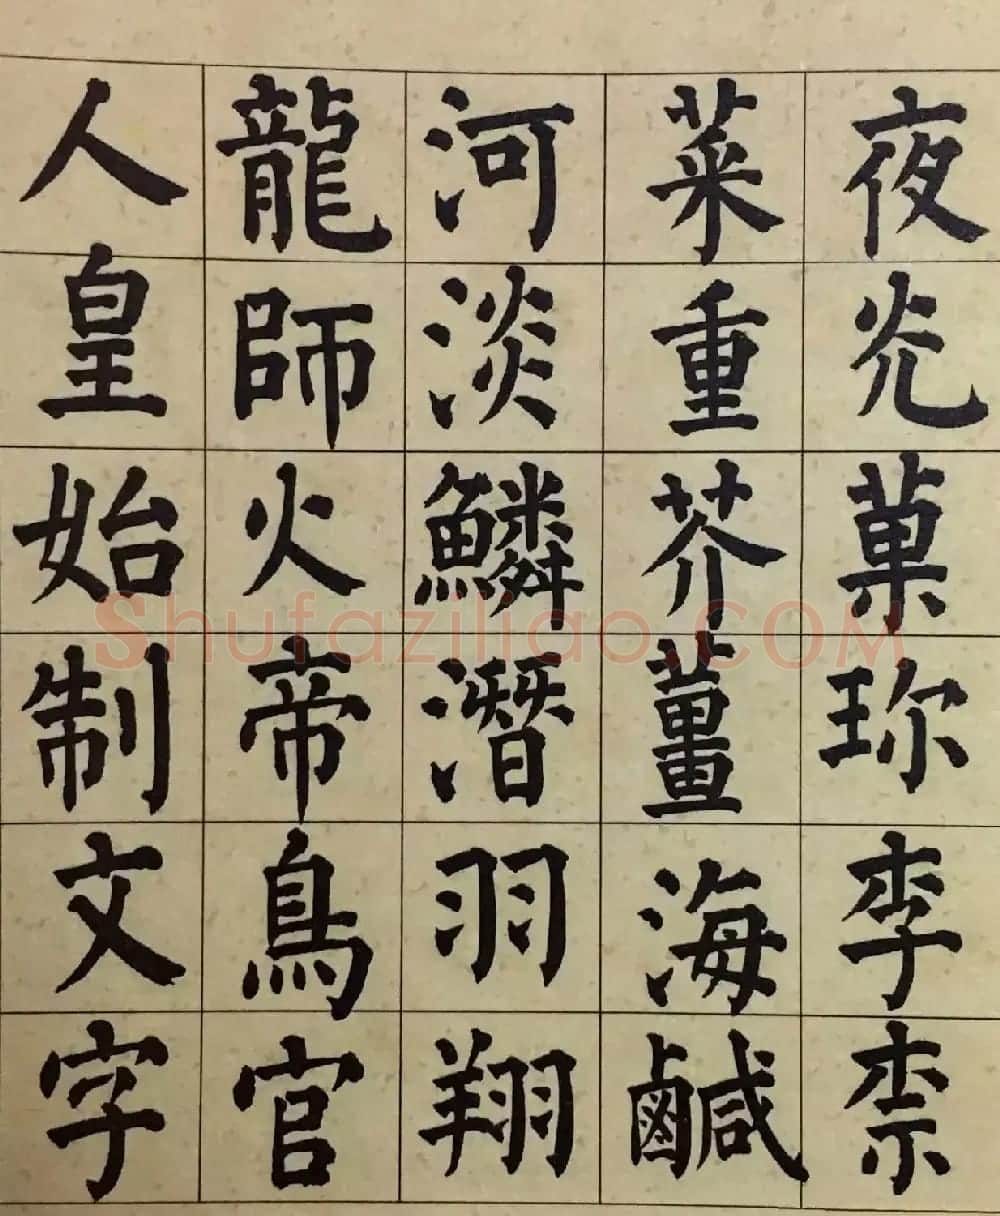 夜光菓珍李柰
菜重芥薑海鹹
河淡鱗潛羽翔
龍師火帝鳥官
人皇始制文字
Shufaziliao.COM